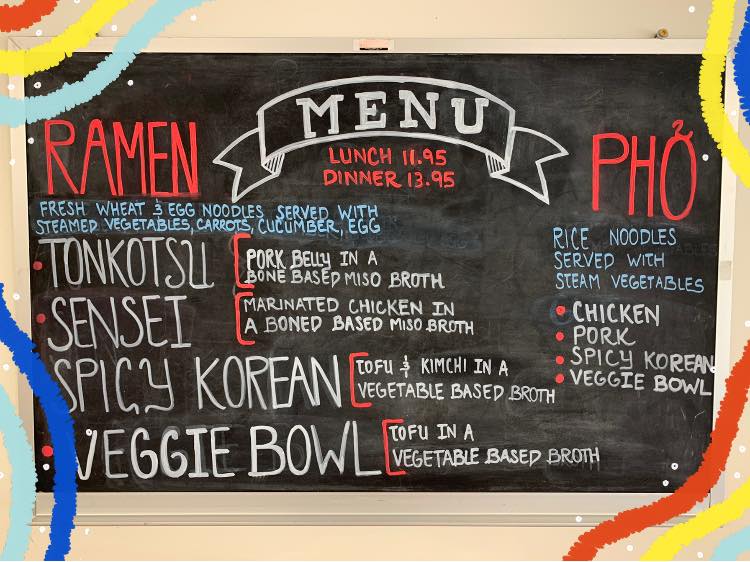 MENU
LUNCH 11.95
DINNER 13.95
RAMEN
FRESH WHEAT & EGG NOODLES SERVED WITH
STEAMED VEGETABLES, CARROTS, CUCUMBER, EGG
TONKOTSU
PORK BELLY IN A
BONE BASED MISO BROTH
SENSEI
MARINATED CHICKEN IN
A BONED BASED MISO BROTH
SPICY KOREAN
TOFU & KIMCHI IN A
VEGETABLE BASED BROTH
VEGGIE BOWL
TOFU IN A
VEGETABLE BASED BROTH
PHỞ
RICE NOODLES
SERVED WITH
STEAM VEGETABLES
CHICKEN
PORK
SPICY KOREAN
VEGGIE BOWL